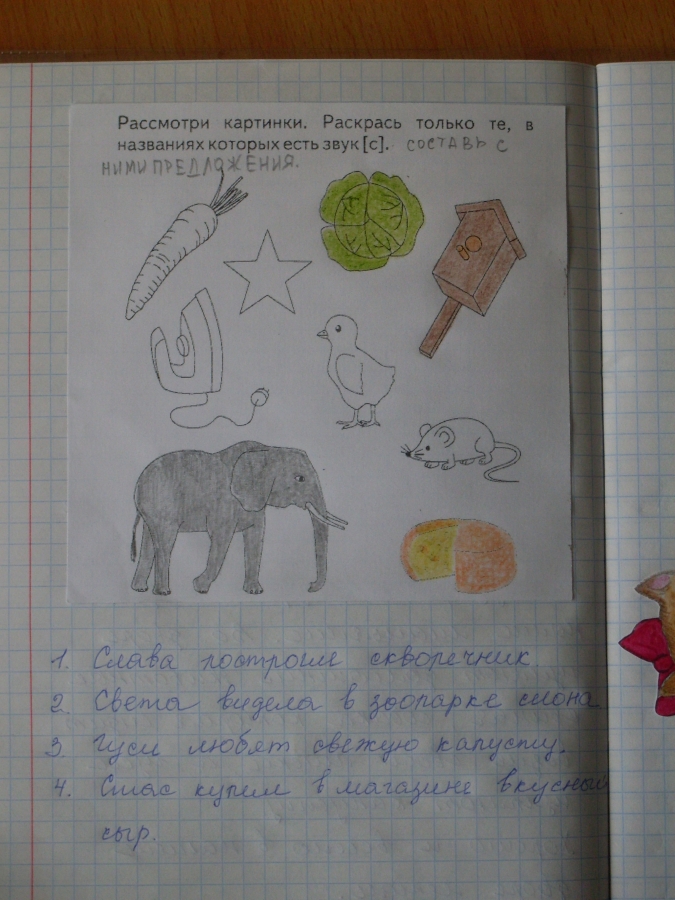 Рассмотри картинки. Раскрась только те, в
названиях которых есть звук [с]. СОСТАВЬ С
НИМИ ПРЕДЛОЖЕНИЯ.
1. Слава построил скворечник
2. Света видела в зоопарке слона
3 Гуси любят свежую капусту.
4. Стас купил в магазине вкусный
сыр.